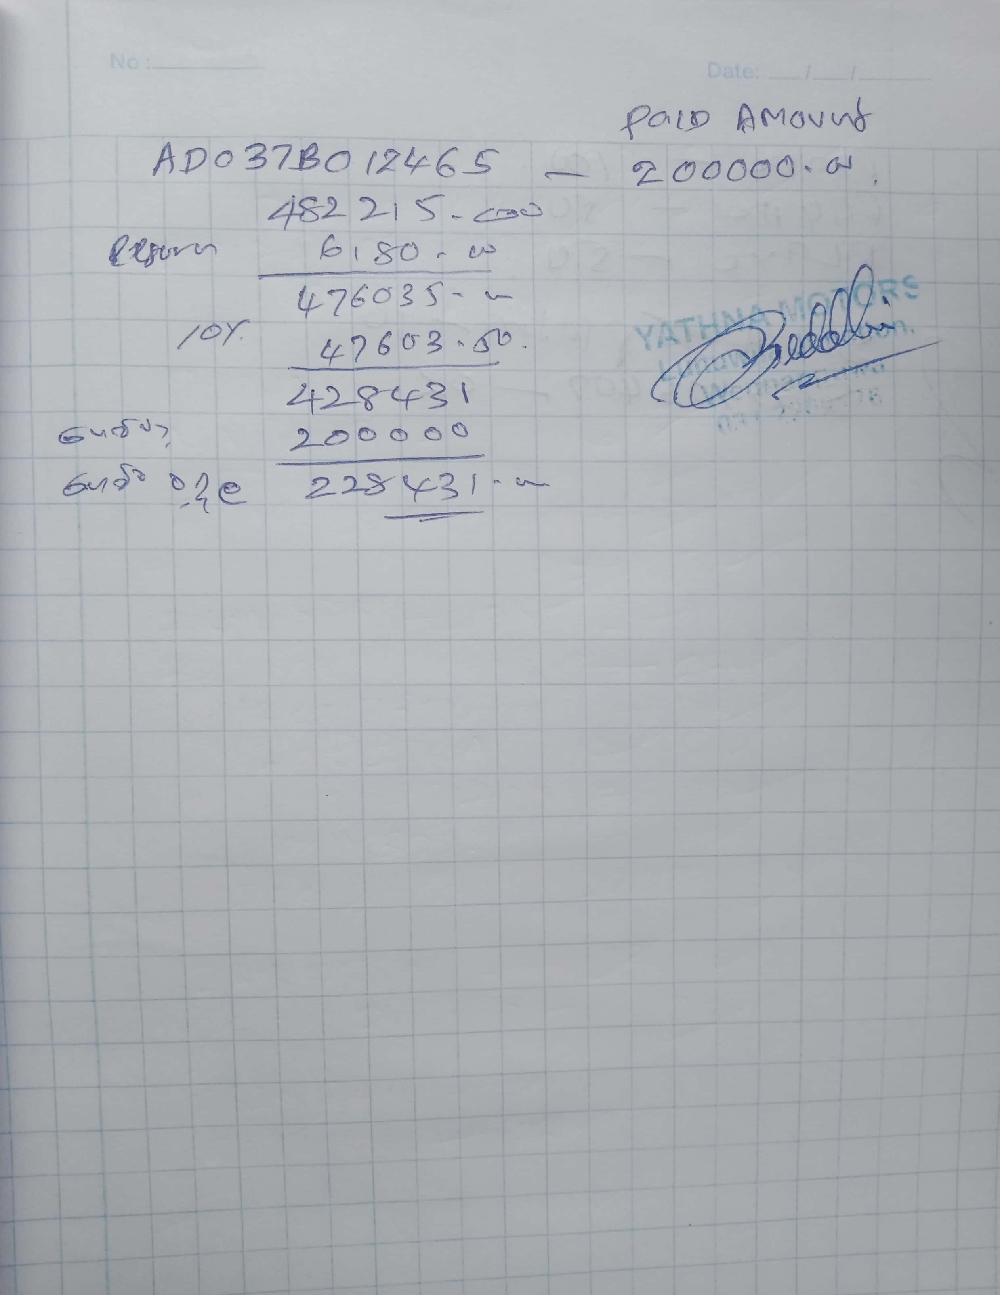 No :
Date: / /
PAID AMOUNT
AD037B012465 — 200000.00
482215.00
Return 6180.00
476035.00
10% 47603.50
428431
200000
228431.00
YATHNA MOTORS